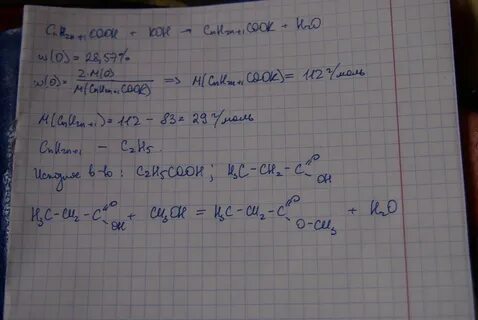 CnH2n+1COOH + KOH → CnH2n+1COOK + H2O
w(O) = 28,57%
w(O) = 2·M(O) / M(CnH2n+1COOK) => M(CnH2n+1COOK) = 112 г/моль
M(CnH2n+1) = 112 - 83 = 29 г/моль
CnH2n+1 - C2H5.
в-во: C2H5COOH; H3C-CH2-C
O
OH
H3C-CH2-C + CH3OH = H3C-CH2-C + H2O
O
OH
O
O-CH3